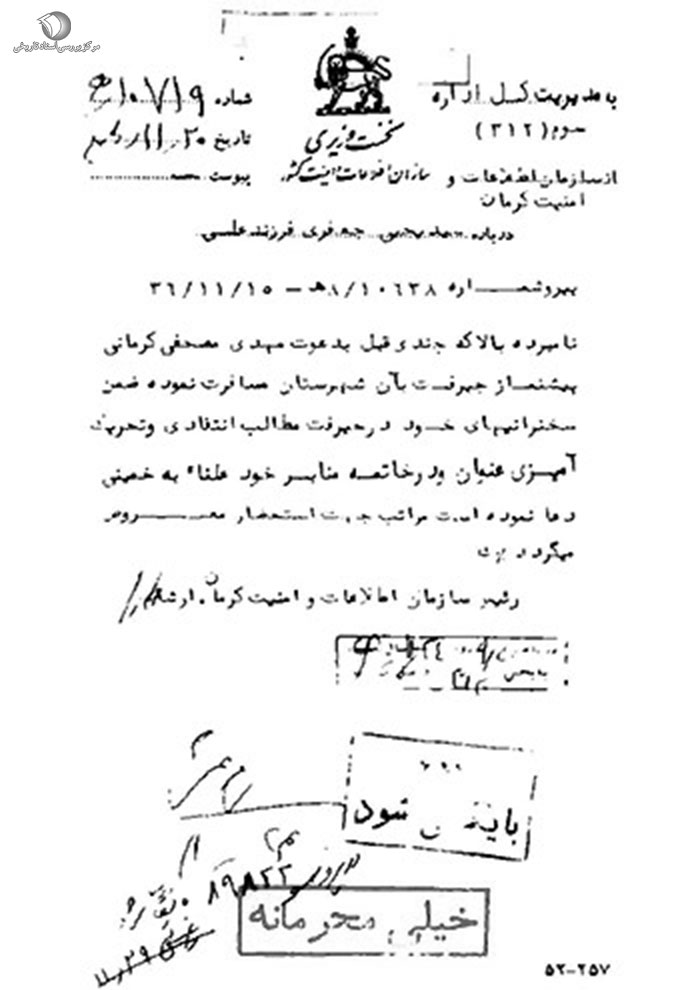 مرکز بررسی اسناد تاریخی
به مدیریت کل اداره
سوم (۳۱۲)
از سازمان اطلاعات و
امنیت کرمان
نخست وزیری
سازمان اطلاعات و امنیت کشور
شماره ۱۰۷۱۹
تاریخ
پیوست
درباره جعفری فرزند علی
پیرو شماره ۸/۱۰۶۳۸ ه‍ - ۳۶/۱۱/۱۵
نامبرده بالا که چندی قبل بدعوت مهدی مصحفی کرمانی
پیشنماز جیرفت بآن شهرستان مسافرت نموده ضمن
سخنرانیهای خود در جیرفت مطالب انتقادی و تحریک
آمیزی عنوان و در خاتمه منابر خود علناً به خمینی
دعا نموده است مراتب جهت استحضار معروض
میگردد
رئیس سازمان اطلاعات و امنیت کرمان
بایگانی شود
۸۹۸۲۲
خیلی محرمانه
۵۲-۲۵۷